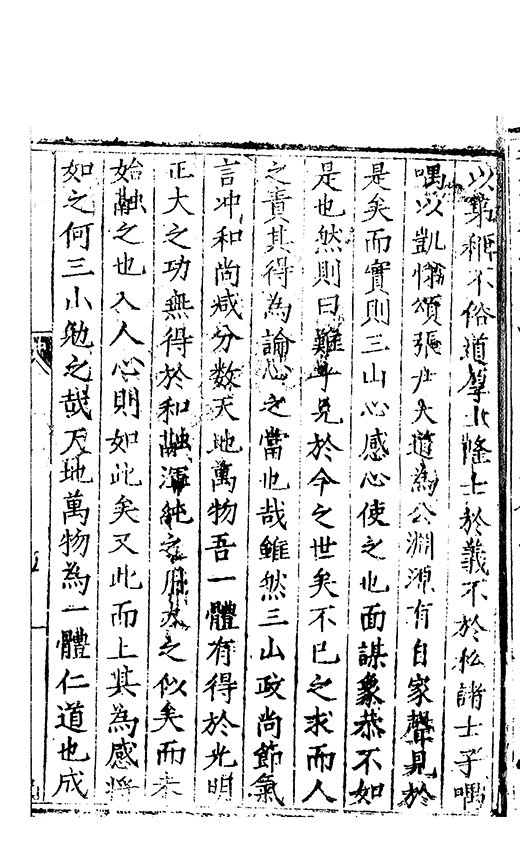 以第種不俗道厚士隆士於義不於私諸士子喁
喁以凱悌頌張 大道為公淵源有自家聲見於
是矣而實則三山心感心使之也面謀象恭不如
是也然則曰難乎免於今之世矣不已之求而人
之責其得為論心之當也哉雖然三山政尚節氣
言冲和尚咸分數天地萬物吾一體有得於光明
正大之功無得於和融渾純之 之似矣而未
始融之也入人心則如此矣又此而上其為感將
如之何三小勉之哉天地萬物為一體仁道也成